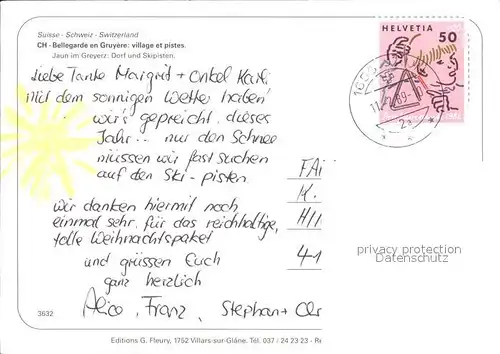 Suisse - Schweiz - Switzerland
CH - Bellegarde en Gruyère: village et pistes.
Jaun im Greyerz: Dorf und Skipisten.
HELVETIA
50
Liebe Tante Margrit + Onkel Karl
Mit dem sonnigen Wetter haben
wir's gepreicht dieses
Jahr... nur den Schnee
müssen wir fast suchen
auf den Ski-pisten
Wir danken hiermit noch
einmal sehr für das reichhaltige,
tolle Weihnachtspaket
und grüssen Euch
ganz herzlich
Alice, Franz, Stephan +
FA
H.
HII
41
privacy protection
Datenschutz
3632
Editions G. Fleury, 1752 Villars-sur-Glâne. Tél. 037 / 24 23 23 - Re